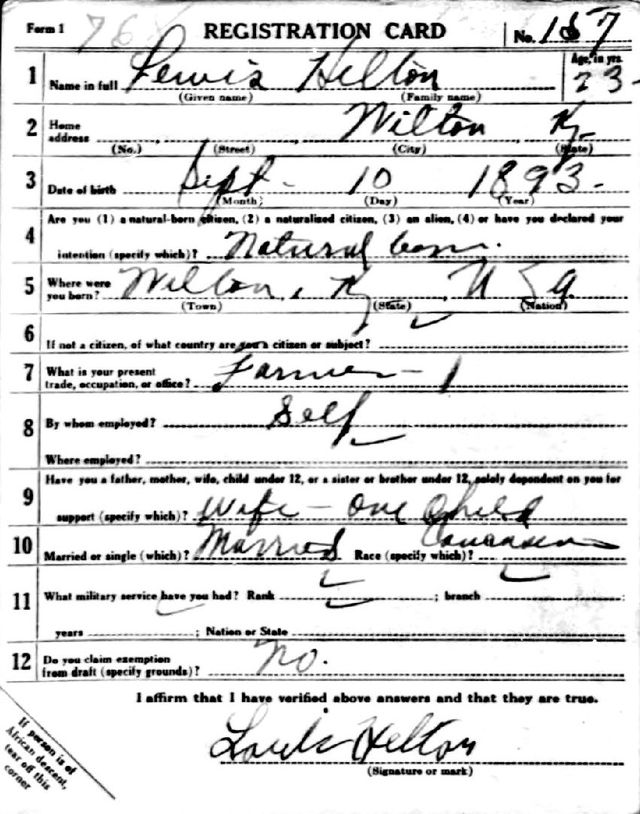 Form 1 76 REGISTRATION CARD No. 167
1 Name in full Lewis Helton Age, in yrs. 23
(Given name) (Family name)
2 Home address Wilton Ky
(No.) (Street) (City) (State)
3 Date of birth Sept - 10 1893.
(Month) (Day) (Year)
4 Are you (1) a natural-born citizen, (2) a naturalized citizen, (3) an alien, (4) or have you declared your
intention (specify which)? Natural born.
5 Where were you born? Wilton, Ky, U S a
(Town) (State) (Nation)
6 If not a citizen, of what country are you a citizen or subject?
7 What is your present trade, occupation, or office? Farmer - 1
8 By whom employed? Self
Where employed?
9 Have you a father, mother, wife, child under 12, or a sister or brother under 12, solely dependent on you for
support (specify which)? Wife - One Child
10 Married or single (which)? Married Race (specify which)? Caucasian
11 What military service have you had? Rank ; branch ;
years ; Nation or State
12 Do you claim exemption from draft (specify grounds)? No.
I affirm that I have verified above answers and that they are true.
Louis Helton
(Signature or mark)
If person is of
African descent,
tear off this
corner